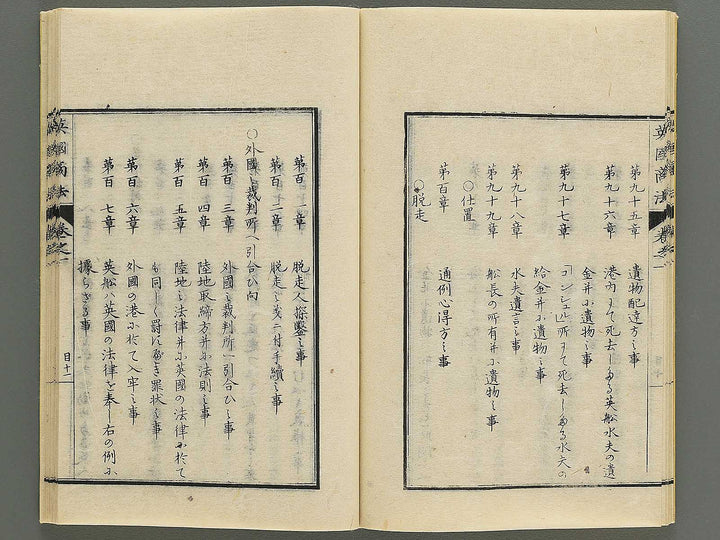 英國商法
卷之一
第九十五章 遺物配達方之事
第九十六章 港內ニて死去したる英船水夫の遺
金并ニ遺物之事
第九十七章 「コンシュル」所ニて死去したる水夫の
給金并ニ遺物之事
第九十八章 水夫遺言之事
第九十九章 船長の所有并ニ遺物之事
○仕置
第百章 通例心得方之事
○脱走
第百一章 脱走人探鑿之事
第百二章 脱走之義ニ付手續之事
○外國之裁判所へ引合ひ向
第百三章 外國之裁判所へ引合ひ之事
第百四章 陸地取締方并ニ法則之事
第百五章 陸地之法律并ニ英國の法律ニ於て
も同しく罰すへき罪状之事
第百六章 外國の港ニ於て入牢之事
第百七章 英船ハ英國の法律を奉し右の例ニ
據らさる事
英國商法
卷之一
目十二